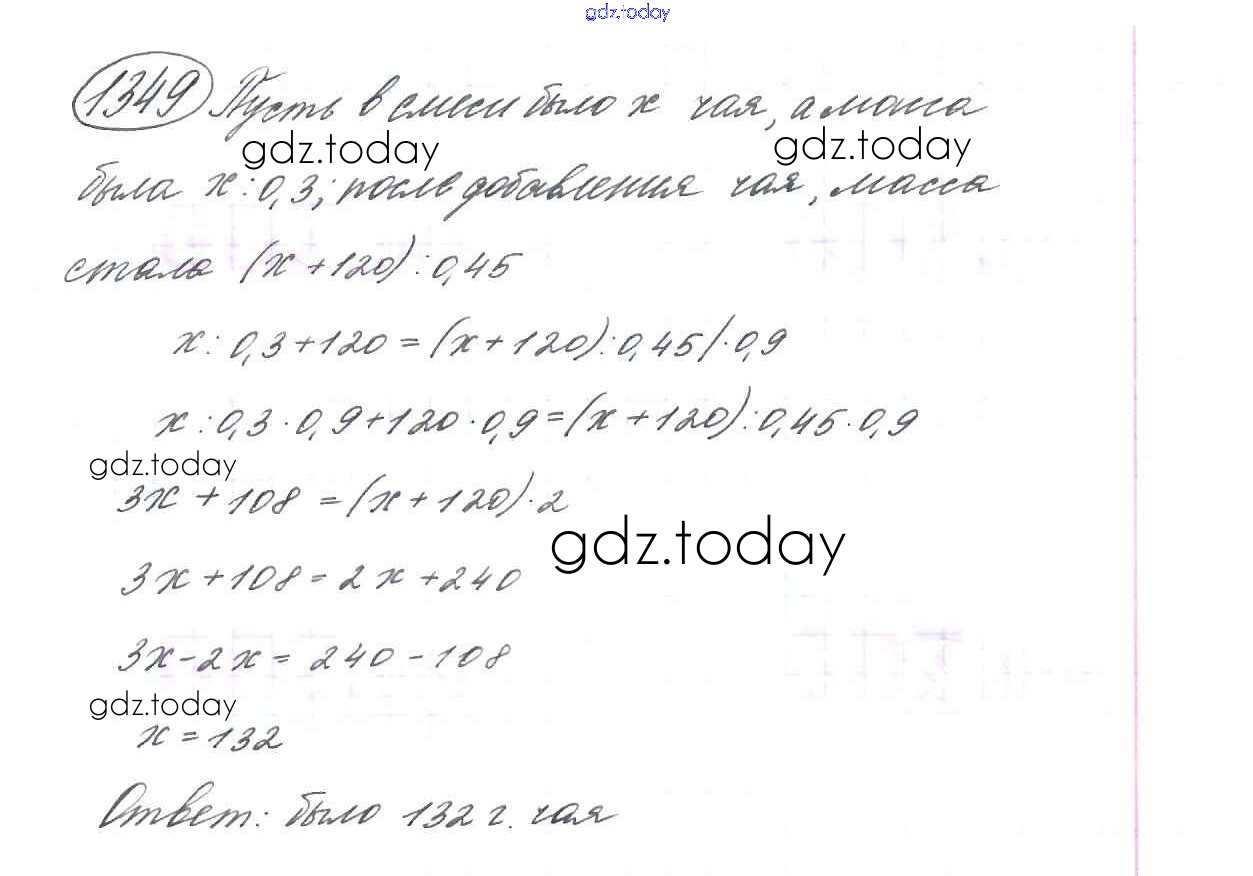 gdz.today
1349 Пусть в смеси было x чая, а масса
gdz.today gdz.today
была x : 0,3; после добавления чая, масса
стала (x + 120) : 0,45
x : 0,3 + 120 = (x + 120) : 0,45 / · 0,9
x : 0,3 · 0,9 + 120 · 0,9 = (x + 120) : 0,45 · 0,9
gdz.today
3x + 108 = (x + 120) · 2
gdz.today
3x + 108 = 2x + 240
3x - 2x = 240 - 108
gdz.today
x = 132
Ответ: было 132 г. чая